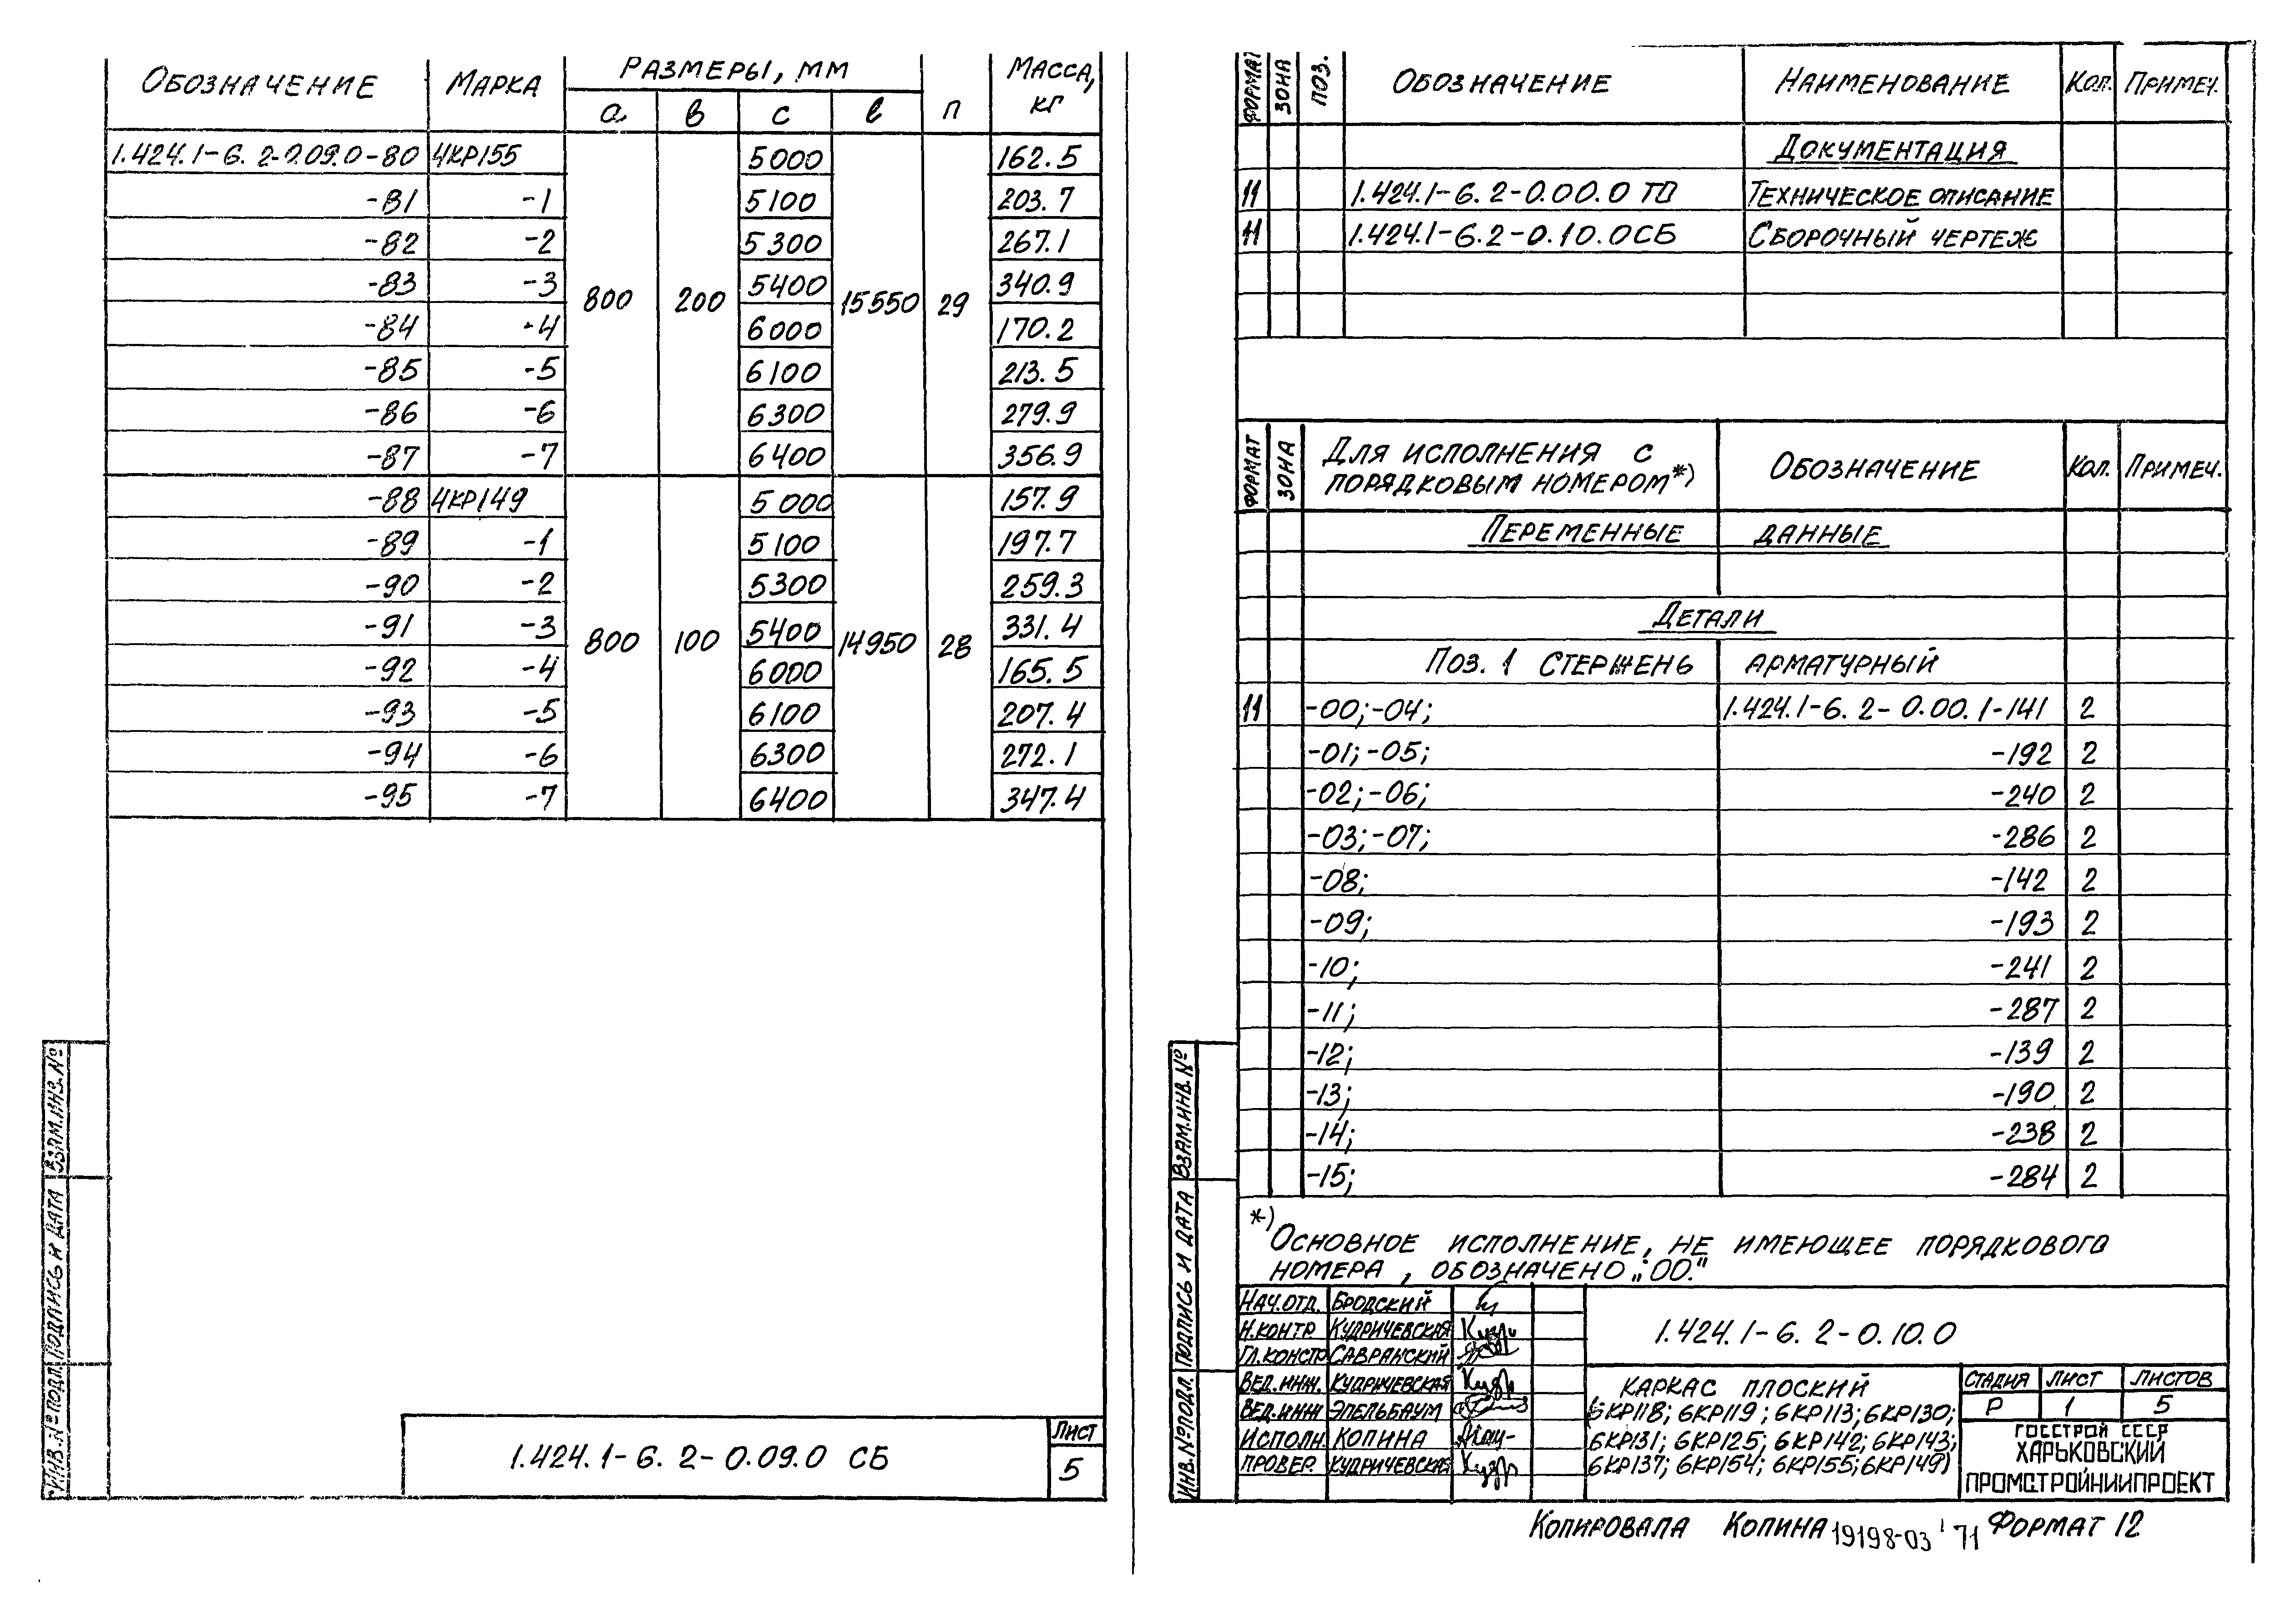 Обозначение Марка Размеры, мм п Масса, кг
а в с ℓ
1.424.1-6.2-0.09.0-80 4КР155 800 200 5000 15550 29 162.5
-81 -1 5100 203.7
-82 -2 5300 267.1
-83 -3 5400 340.9
-84 -4 6000 170.2
-85 -5 6100 213.5
-86 -6 6300 279.9
-87 -7 6400 356.9
-88 4КР149 800 100 5000 14950 28 157.9
-89 -1 5100 197.7
-90 -2 5300 259.3
-91 -3 5400 331.4
-92 -4 6000 165.5
-93 -5 6100 207.4
-94 -6 6300 272.1
-95 -7 6400 347.4
Взам.инв.№
Подпись и дата
Инв.№подл.
1.424.1-6.2-0.09.0 СБ
Лист
5
Формат Зона Поз. Обозначение Наименование Кол. Примеч.
Документация
11 1.424.1-6.2-0.00.0 ТО Техническое описание
11 1.424.1-6.2-0.10.0СБ Сборочный чертеж
Формат Зона Для исполнения с порядковым номером*) Обозначение Кол. Примеч.
Переменные данные
Детали
Поз. 1 Стержень арматурный
11 -00;-04; 1.424.1-6.2-0.00.1-141 2
-01;-05; -192 2
-02;-06; -240 2
-03;-07; -286 2
-08; -142 2
-09; -193 2
-10; -241 2
-11; -287 2
-12; -139 2
-13; -190 2
-14; -238 2
-15; -284 2
*) Основное исполнение, не имеющее порядкового
номера, обозначено „00."
Взам.инв.№
Подпись и дата
Инв.№подл.
Нач.отд. Бродский
Н.контр Кудричевская
Гл.констр Савранский
Вед.инж. Кудричевская
Вед.инж Эпельбаум
Исполн. Копина
Провер. Кудричевская
1.424.1-6.2-0.10.0
Каркас плоский
6КР118; 6КР119; 6КР113; 6КР130;
6КР131; 6КР125; 6КР142; 6КР143;
6КР137; 6КР154; 6КР155; 6КР149)
Стадия Лист Листов
Р 1 5
Госстрой СССР
Харьковский
Промстройниипроект
Копировала Копина 19198-03 71 Формат 12